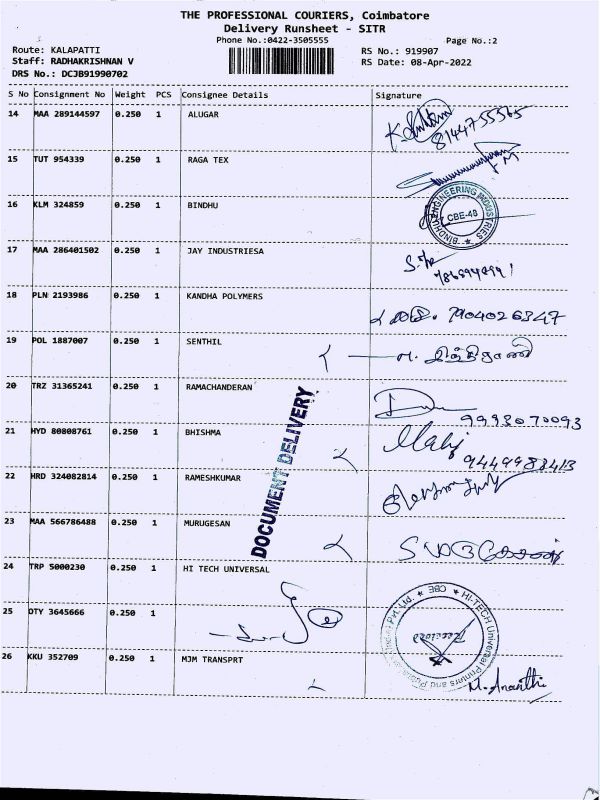 THE PROFESSIONAL COURIERS, Coimbatore
Delivery Runsheet - SITR
Phone No.:0422-3505555
Page No.:2
Route: KALAPATTI
RS No.: 919907
Staff: RADHAKRISHNAN V
RS Date: 08-Apr-2022
DRS No.: DCJB91990702
S No Consignment No Weight PCS Consignee Details Signature
14 MAA 289144597 0.250 1 ALUGAR
8144755565
15 TUT 954339 0.250 1 RAGA TEX
16 KLM 324859 0.250 1 BINDHU
BINDHU ENGINEERING INDUSTRIES
CBE-48
17 MAA 286401502 0.250 1 JAY INDUSTRIESA
18 PLN 2193986 0.250 1 KANDHA POLYMERS
7904026347
19 POL 1887007 0.250 1 SENTHIL
20 TRZ 31365241 0.250 1 RAMACHANDERAN
21 HYD 80808761 0.250 1 BHISHMA
22 HRD 324082814 0.250 1 RAMESHKUMAR
23 MAA 566786488 0.250 1 MURUGESAN
DOCUMENT DELIVERY
24 TRP 5000230 0.250 1 HI TECH UNIVERSAL
HI-TECH Universal Printers and
Pvt. Ltd. CBE
25 OTY 3645666 0.250 1
26 KKU 352709 0.250 1 MJM TRANSPRT
M. Ananthi